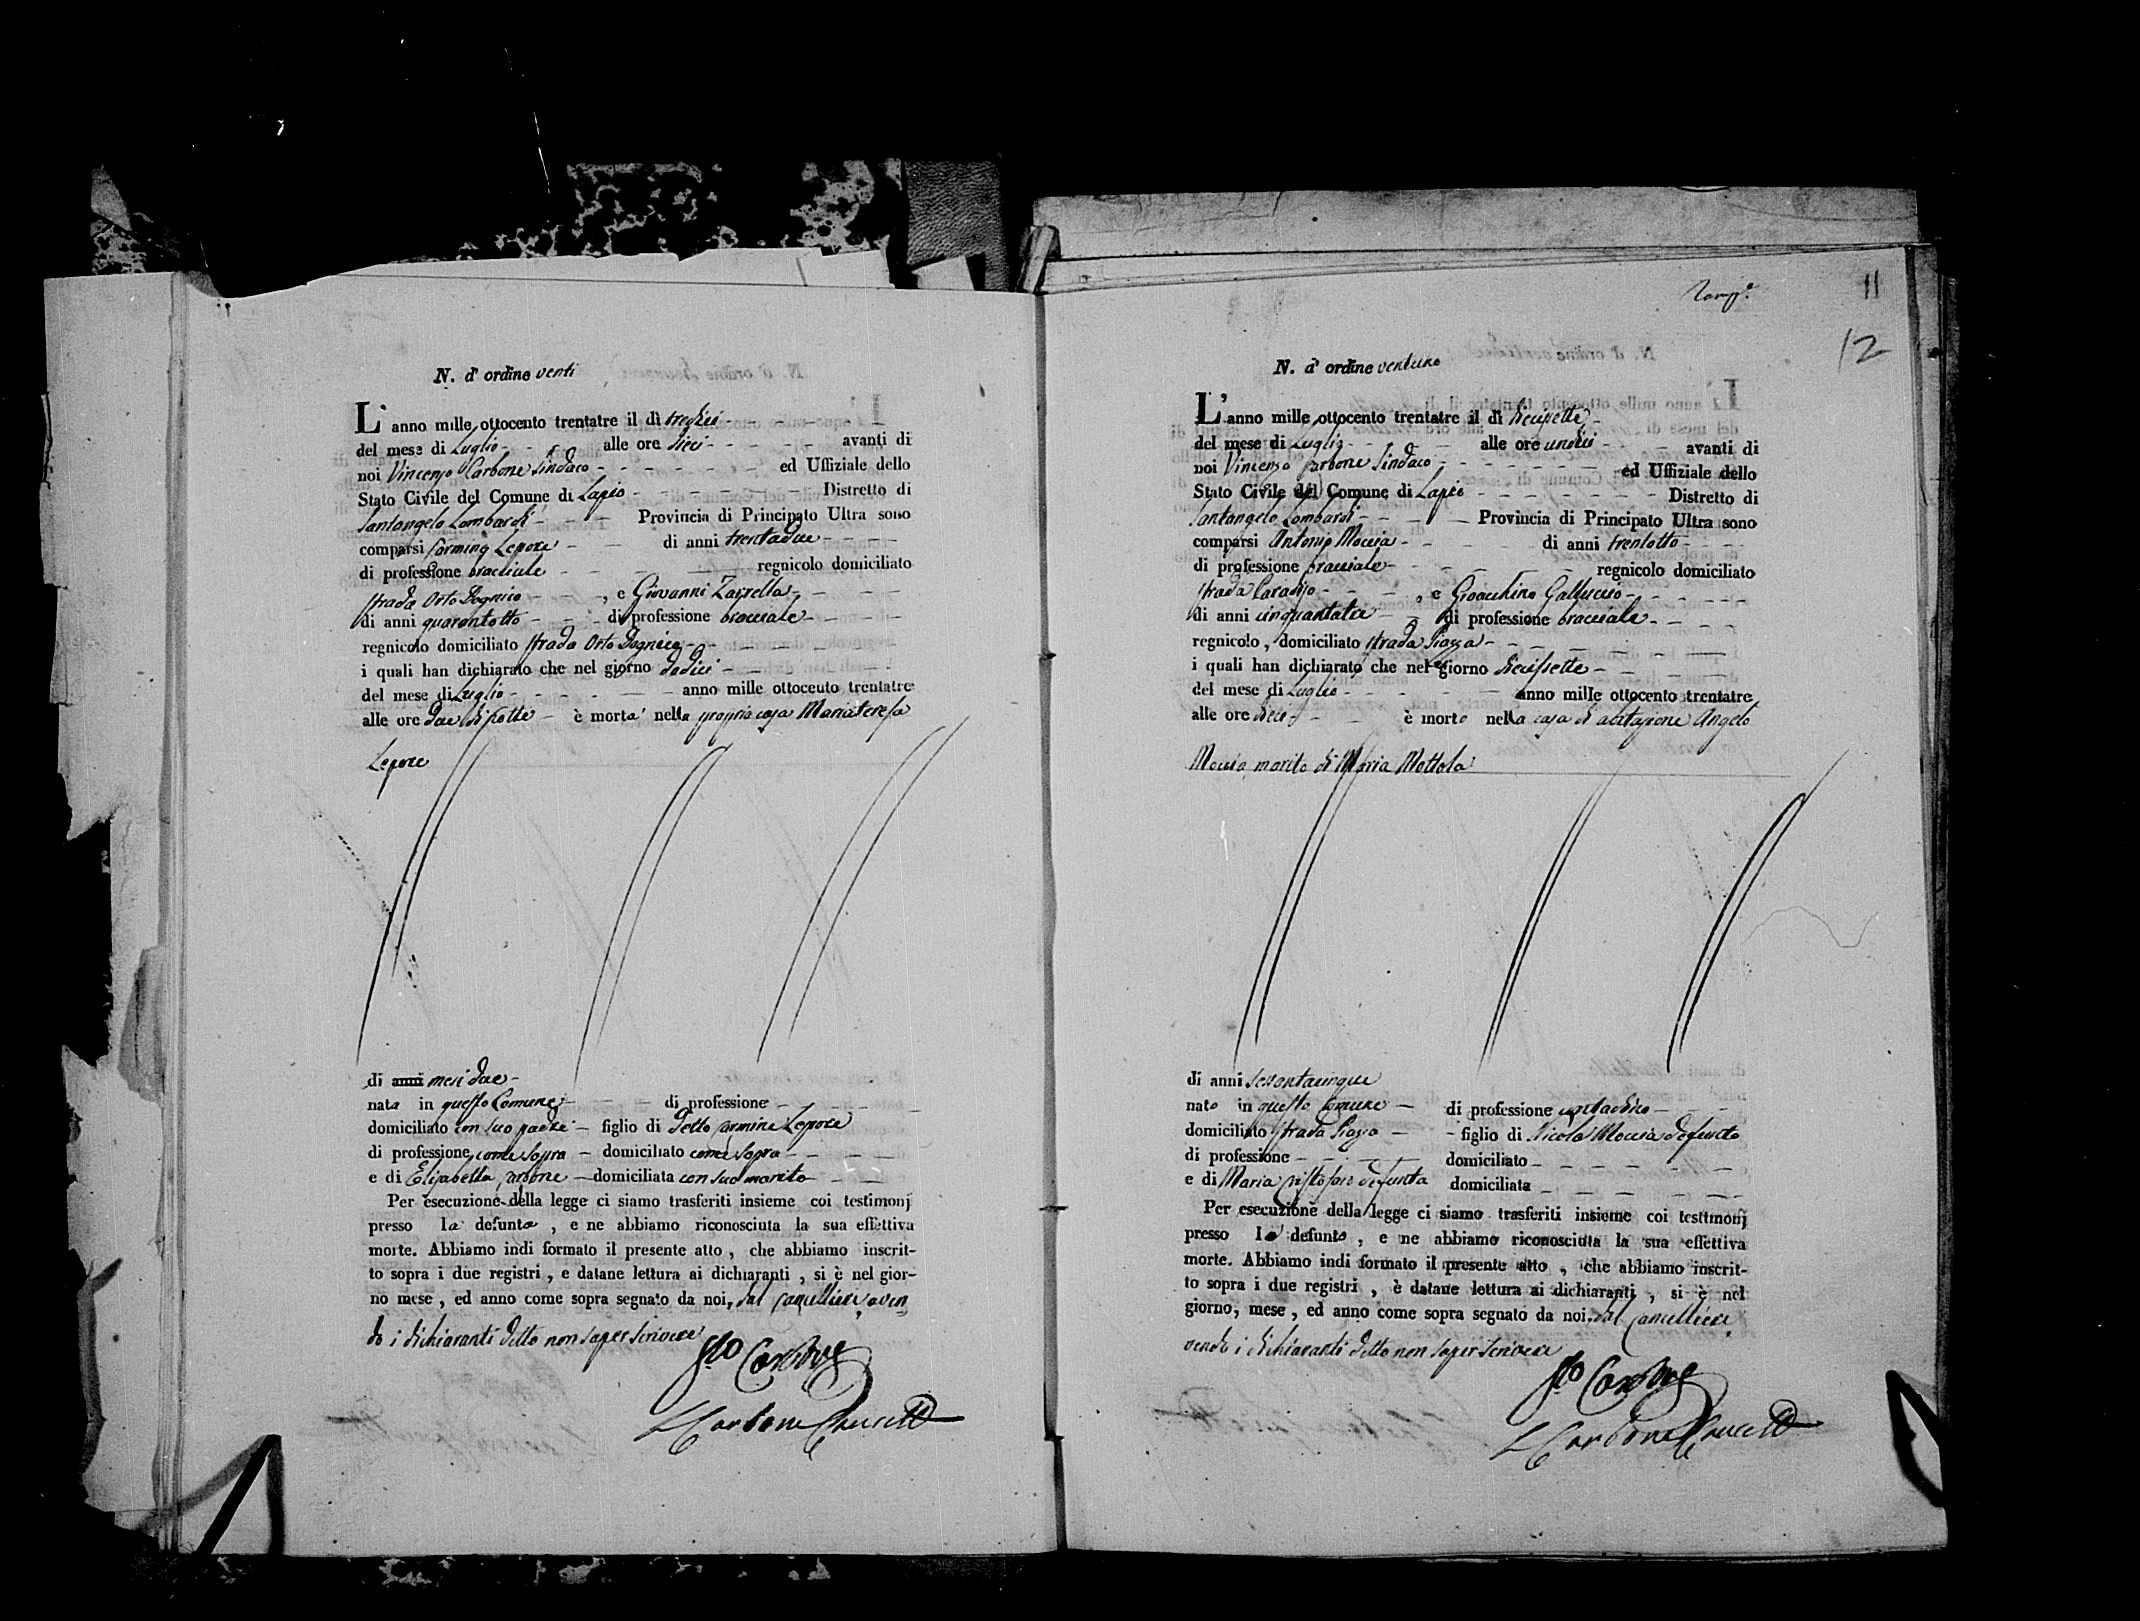 N. d' ordine venti
L' anno mille ottocento trentatre il dì tredici
del mese di Luglio alle ore dieci avanti di
noi Vincenzo Carbone Sindaco ed Uffiziale dello
Stato Civile del Comune di Lapio Distretto di
Santangelo Lombardi Provincia di Principato Ultra sono
comparsi Carmine Lepore di anni trentadue
di professione bracciale regnicolo domiciliato
strada Orto Dognico , e Giovanni Zarrella
di anni quarantotto di professione bracciale
regnicolo domiciliato strada Orto Dognico
i quali han dichiarato che nel giorno dodici
del mese di Luglio anno mille ottocento trentatre
alle ore due di notte è morta nella propria casa Mariateresa
Lepore
di anni mesi due
nata in questo Comune di professione
domiciliato con suo padre figlio di Detto Carmine Lepore
di professione come sopra domiciliato come sopra
e di Elisabetta Carbone domiciliata con suo marito
Per esecuzione della legge ci siamo trasferiti insieme coi testimonj
presso la defunta , e ne abbiamo riconosciuta la sua effettiva
morte. Abbiamo indi formato il presente atto , che abbiamo inscrit-
to sopra i due registri , e datane lettura ai dichiaranti , si è nel gior-
no mese , ed anno come sopra segnato da noi, dal Cancelliere, aven
do i dichiaranti detto non saper scrivere
Carbone
Carbone Cancell
11
12
N. d' ordine ventuno
L' anno mille ottocento trentatre il dì diecisette
del mese di Luglio alle ore undici avanti di
noi Vincenzo Carbone Sindaco ed Uffiziale dello
Stato Civile del Comune di Lapio Distretto di
Santangelo Lombardi Provincia di Principato Ultra sono
comparsi Antonio Moccia di anni trentotto
di professione bracciale regnicolo domiciliato
strada Paradiso , e Gioacchino Galluccio
di anni cinquantatre di professione bracciale
regnicolo , domiciliato strada Piazza
i quali han dichiarato che nel giorno diecisette
del mese di Luglio anno mille ottocento trentatre
alle ore dieci è morto nella casa di abitazione Angelo
Moccia marito di Maria Mottola
di anni sessantacinque
nato in questo Comune di professione contadino
domiciliato strada Piazza figlio di Nicola Moccia defunto
di professione domiciliato
e di Maria defunta domiciliata
Per esecuzione della legge ci siamo trasferiti insieme coi testimonj
presso lo defunto , e ne abbiamo riconosciuta la sua effettiva
morte. Abbiamo indi formato il presente atto , che abbiamo inscrit-
to sopra i due registri , è datane lettura ai dichiaranti , si è nel
giorno, mese , ed anno come sopra segnato da noi, dal Cancelliere,
vendo i dichiaranti detto non saper scrivere
Carbone
Carbone Cancell